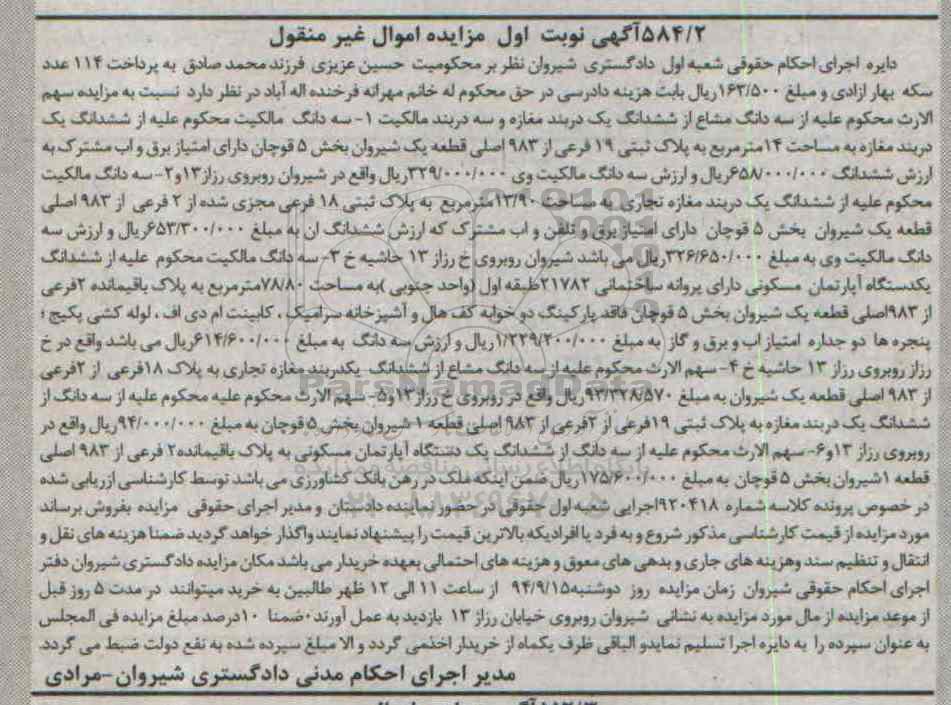 ۵۸۴/۲آگهی نوبت اول مزایده اموال غیر منقول
دایره اجرای احکام حقوقی شعبه اول دادگستری شیروان نظر بر محکومیت حسین عزیزی فرزند محمد صادق به پرداخت ۱۱۴ عدد
سکه بهار ازادی و مبلغ ۱۶۳/۵۰۰ریال بابت هزینه دادرسی در حق محکوم له خانم مهرانه فرخنده اله آباد در نظر دارد نسبت به مزایده سهم
الارث محکوم علیه از سه دانگ مشاع از ششدانگ یک دربند مغازه و سه دربند مالکیت ۱- سه دانگ مالکیت محکوم علیه از ششدانگ یک
دربند مغازه به مساحت ۱۴مترمربع به پلاک ثبتی ۱۹ فرعی از ۹۸۳ اصلی قطعه یک شیروان بخش ۵ قوچان دارای امتیاز برق و اب مشترک به
ارزش ششدانگ ۶۵۸/۰۰۰/۰۰۰ریال و ارزش سه دانگ مالکیت وی ۳۲۹/۰۰۰/۰۰۰ریال واقع در شیروان روبروی رزاز۱۳و۲-سه دانگ مالکیت
محکوم علیه از ششدانگ یک دربند مغازه تجاری به مساحت ۱۳/۹۰مترمربع به پلاک ثبتی ۱۸ فرعی مجزی شده از ۲ فرعی از ۹۸۳ اصلی
قطعه یک شیروان بخش ۵ قوچان دارای امتیاز برق و تلفن و اب مشترک که ارزش ششدانگ ان به مبلغ ۶۵۳/۳۰۰/۰۰۰ریال و ارزش سه
دانگ مالکیت وی به مبلغ ۳۲۶/۶۵۰/۰۰۰ریال می باشد شیروان روبروی خ رزاز ۱۳ حاشیه خ ۳- سه دانگ مالکیت محکوم علیه از ششدانگ
یکدستگاه آپارتمان مسکونی دارای پروانه ساختمانی ۲۱۷۸۲طبقه اول (واحد جنوبی )به مساحت ۷۸/۸۰مترمربع به پلاک باقیمانده ۲فرعی
از ۹۸۳اصلی قطعه یک شیروان بخش ۵ قوچان فاقد پارکینگ دو خوابه کف هال و آشپزخانه سرامیک ، کابینت ام دی اف ، لوله کشی پکیج ؛
پنجره ها دو جداره امتیاز اب و برق و گاز به مبلغ ۱/۲۲۹/۲۰۰/۰۰۰ریال و ارزش سه دانگ به مبلغ ۶۱۴/۶۰۰/۰۰۰ریال می باشد واقع در خ
رزاز روبروی رزاز ۱۳ حاشیه خ ۴- سهم الارث محکوم علیه از سه دانگ مشاع از ششدانگ یکدربند مغازه تجاری به پلاک ۱۸فرعی از ۲فرعی
از ۹۸۳ اصلی قطعه یک شیروان به مبلغ ۹۳/۳۲۸/۵۷۰ریال واقع در روبروی خ رزاز۱۳و۵- سهم الارث محکوم علیه محکوم علیه از سه دانگ از
ششدانگ یک دربند مغازه به پلاک ثبتی ۱۹فرعی از ۲فرعی از ۹۸۳ اصلی قطعه ۱ شیروان بخش ۵ قوچان به مبلغ ۹۴/۰۰۰/۰۰۰ریال واقع در
روبروی رزاز ۱۳و۶- سهم الارث محکوم علیه از سه دانگ از ششدانگ یک دستگاه آپارتمان مسکونی به پلاک باقیمانده۲ فرعی از ۹۸۳ اصلی
قطعه ۱شیروان بخش ۵ قوچان به مبلغ ۱۷۵/۶۰۰/۰۰۰ریال ضمن اینکه ملک در رهن بانک کشاورزی می باشد توسط کارشناسی ارزیابی شده
در خصوص پرونده کلاسه شماره ۹۲۰۴۱۸اجرایی شعبه اول حقوقی در حضور نماینده دادستان و مدیر اجرای حقوقی مزایده بفروش برساند
مورد مزایده از قیمت کارشناسی مذکور شروع و به فرد یا افرادیکه بالاترین قیمت را پیشنهاد نمایند واگذار خواهد گردید ضمنا هزینه های نقل و
انتقال و تنظیم سند وهزینه های جاری و بدهی های معوق و هزینه های احتمالی بعهده خریدار می باشد مکان مزایده دادگستری شیروان دفتر
اجرای احکام حقوقی شیروان زمان مزایده روز دوشنبه۹۴/۹/۱۵ از ساعت ۱۱ الی ۱۲ ظهر طالبین به خرید میتوانند در مدت ۵ روز قبل
از موعد مزایده از مال مورد مزایده به نشانی شیروان روبروی خیابان رزاز ۱۳ بازدید به عمل آورند.ضمنا ۱۰درصد مبلغ مزایده فی المجلس
به عنوان سپرده را به دایره اجرا تسلیم نمایدو الباقی ظرف یکماه از خریدار اخذمی گردد و الا مبلغ سپرده شده به نفع دولت ضبط می گردد.
مدیر اجرای احکام مدنی دادگستری شیروان-مرادی
ParsNamadData